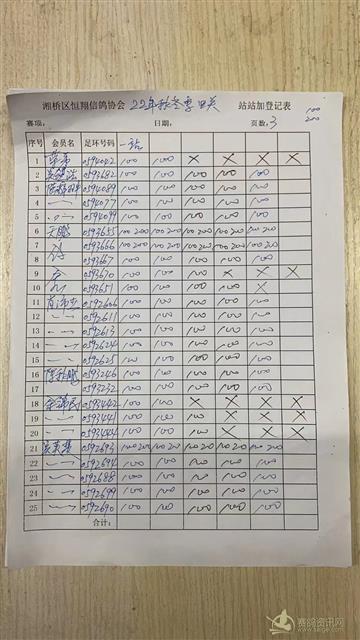 湘桥区恒翔信鸽协会 22年秋冬季四关 站站加登记表
100
200
赛项: 日期: 页数: 3
序号 会员名 足环号码 一站
1 0594042 100 100 × × × ×
2 0593682 100 100 100 100 100
3 0594089 100 100 100 100 100
4 〃 0594077 100 100 100 100 100
5 〃 0594099 100 100 100 100 100
6 天鹏 0593655 100 200 100 200 100 200 100 200 100 200
7 0593666 100 200 100 200 100 200 100 200 100 200
8 0593667 100 100 100 100 100
9 0593670 100 100 100 × × ×
10 0593651 100 100 100 100 ×
11 0592606 100 100 100 100 100
12 〃 0592611 100 100 100 100 100
13 〃 0592613 100 100 100 100 100
14 〃 0592624 100 100 100 100 100
15 〃 0592625 100 100 100 100 100
16 0593246 100 100 100 100 100
17 0593232 100 100 100 100 100
18 0593442 100 100 × × × ×
19 〃 0593441 100 100 100 × × ×
20 〃 0593444 100 100 100 × × ×
21 0592693 100 200 100 200 100 200 100 200 100 200
22 〃 0592694 100 100 100 100 100
23 〃 0592688 100 100 100 100 100
24 〃 0592699 100 100 100 100 100
25 〃 0592690 100 100 100 100 100
合计:
赛鸽资讯网
www.saige.com